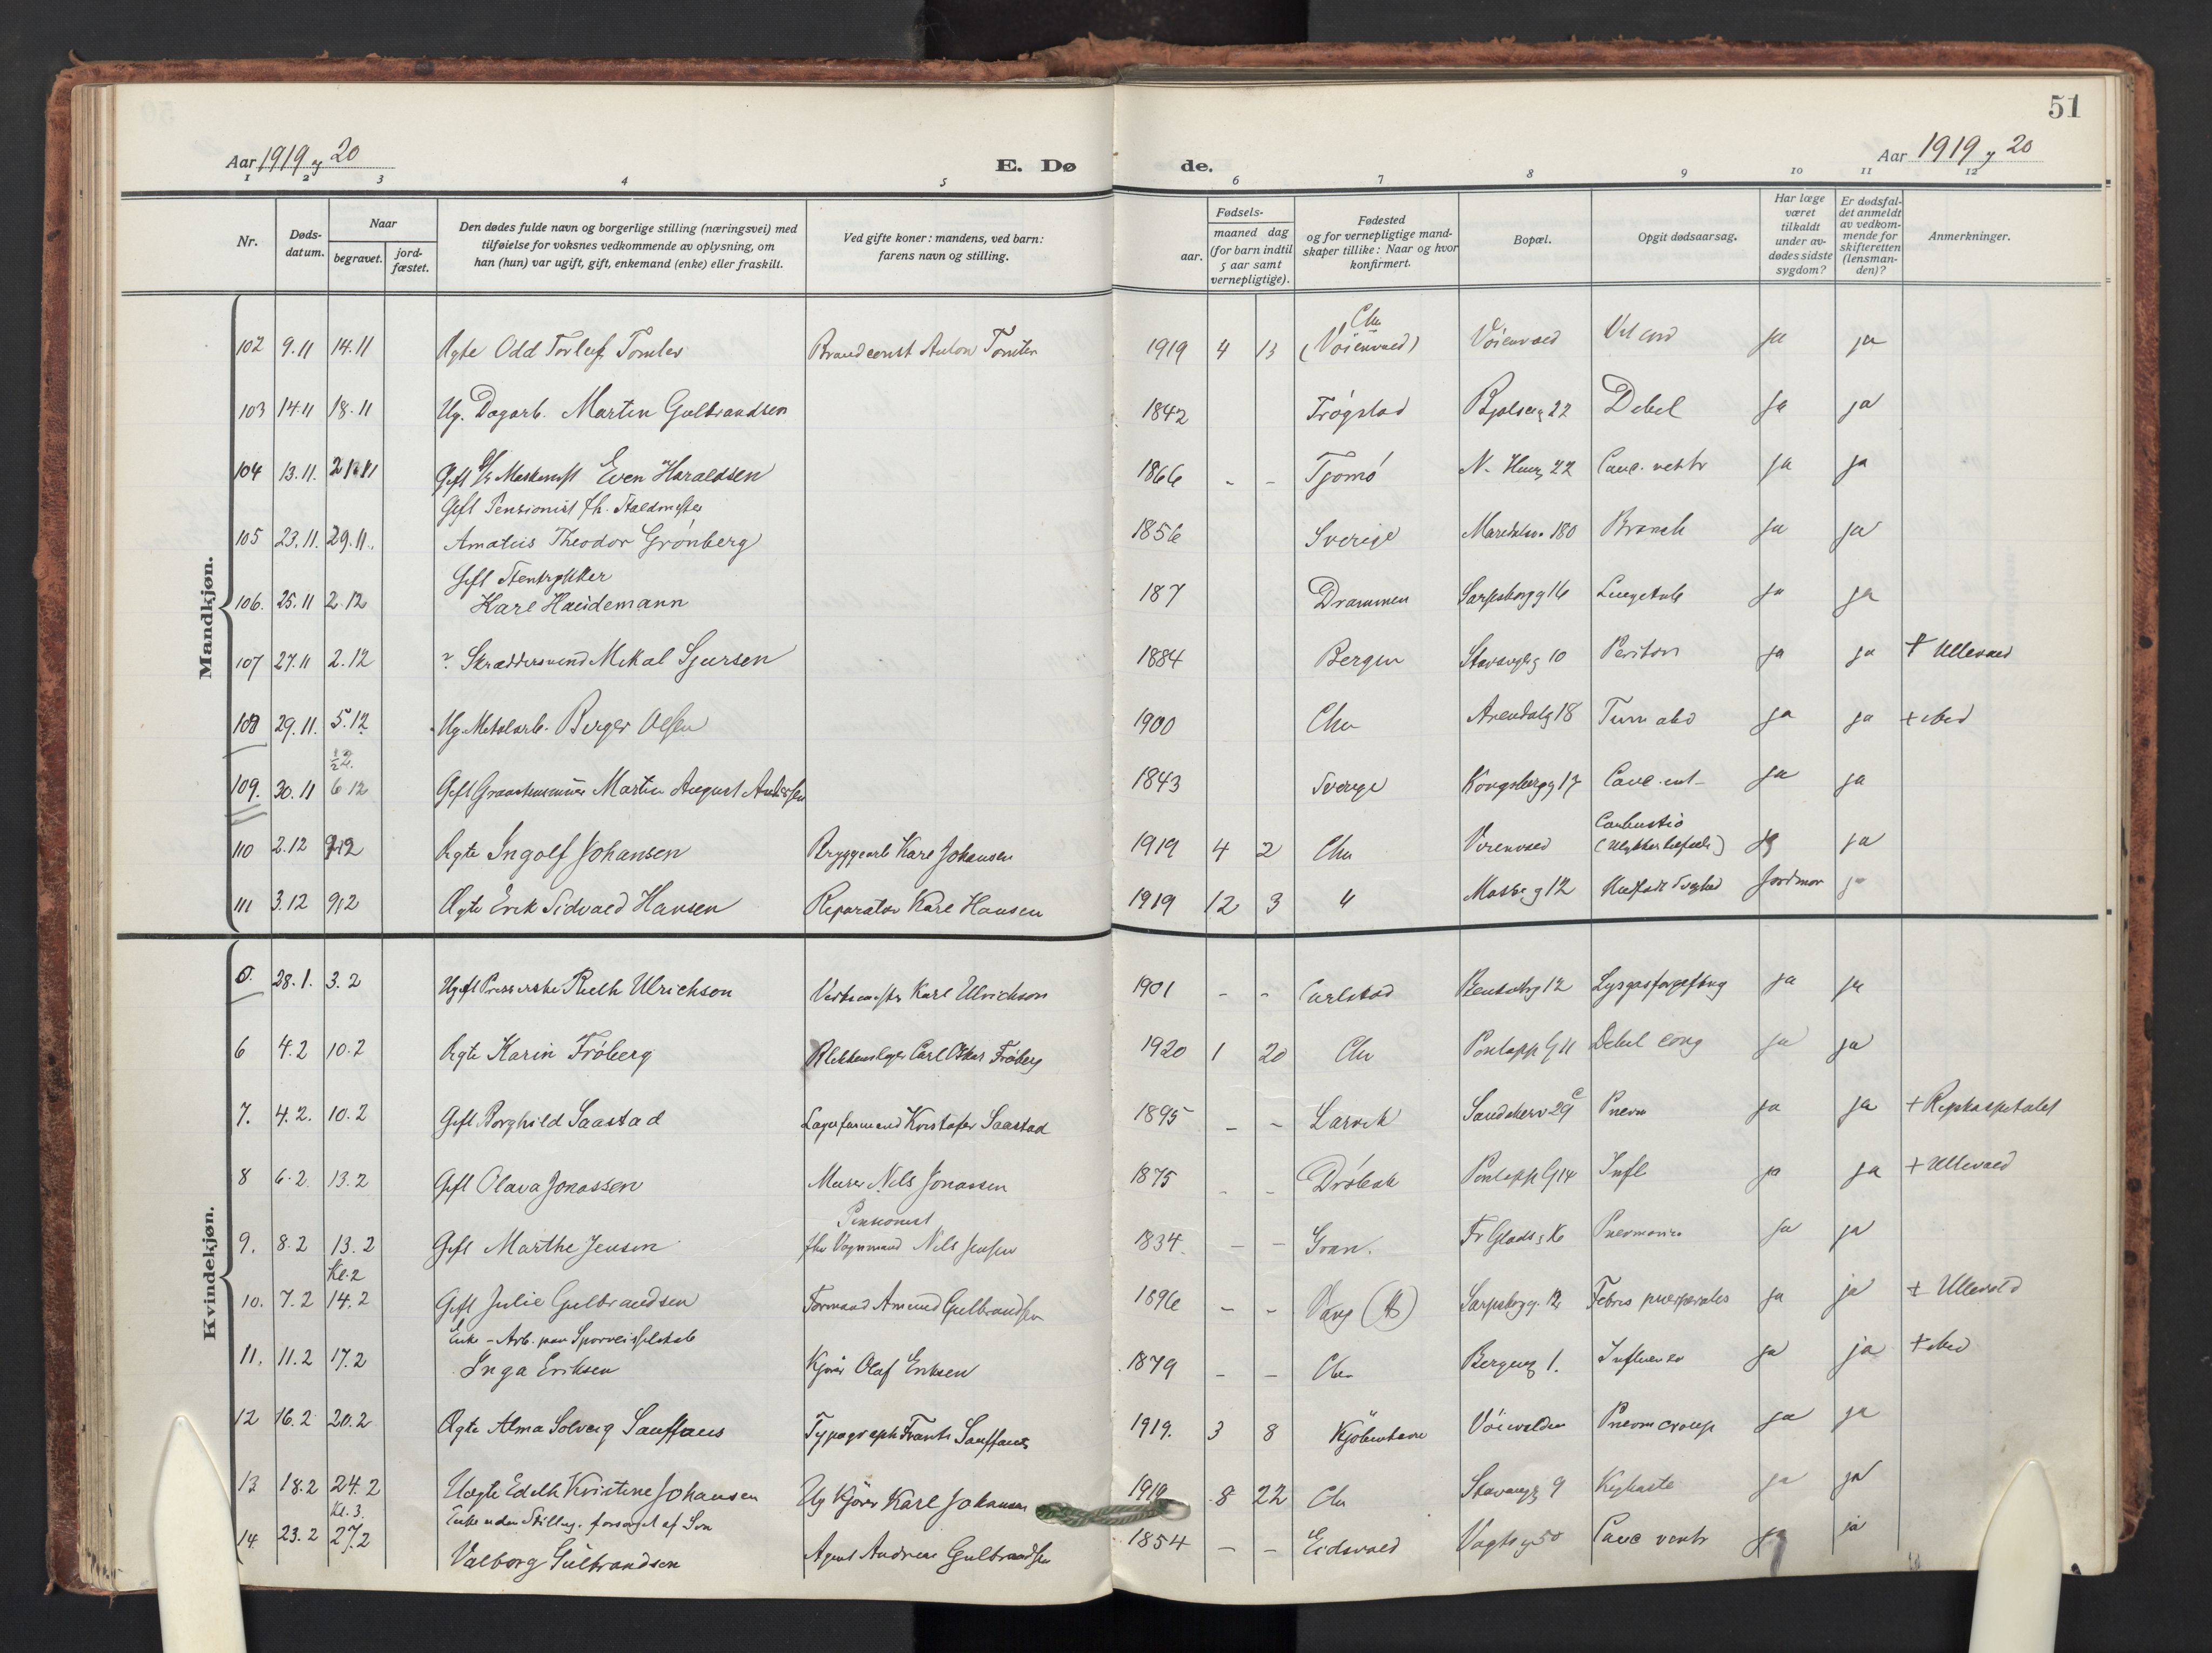 51
Aar 1919 og 20
E. Dø
de.
Aar 1919 og 20
1 2 3 4 5 6 7 8 9 10 11 12
Nr.
Døds-
datum.
Naar
begravet.
jord-
fæstet.
Den dødes fulde navn og borgerlige stilling (næringsvei) med
tilføielse for voksnes vedkommende av oplysning, om
han (hun) var ugift, gift, enkemand (enke) eller fraskilt.
Ved gifte koner: mandens, ved barn:
farens navn og stilling.
Fødsels-
aar.
maaned dag
(for barn indtil
5 aar samt
vernepligtige).
Fødested
og for vernepligtige mand-
skaper tillike: Naar og hvor
konfirmert.
Bopæl.
Opgit dødsaarsag.
Har læge
været
tilkaldt
under av-
dødes sidste
sygdom?
Er dødsfal-
det anmeldt
av vedkom-
mende for
skifteretten
(lensman-
den)?
Anmerkninger.
Mandkjøn.
102 9.11 14.11 Ægte Odd Torleif Tomter Anton Tomter 1919 4 13 Chr (Vøienvold) Vøienvold Vit cord ja ja
103 14.11 18.11 Ug. Dagarb. Martin Gulbrandsen 1842 Trøgstad 22 Debil ja ja
104 13.11. 21.11 Gift Even Haraldsen 1866 - - Tjømø 22 Canc. ventr ja ja
Gift Pensionist fh. Staldmester
105 23.11. 29.11. Amatus Theodor Grønberg 1856 Sverige Maridalsv. 180 Bronch ja ja
Gift Stentrykker
106. 25.11 2.12 Karl Haudemann 187 Drammen Sarpsborgg 16 ja ja
107 27.11 2.12 ? Skræddersvend Mikal Sjursen 1884 Bergen Stavangerg 10 Periton ja ja + Ullevaal
108 29.11. 5.12 Ug. Metalarb. Birger Olsen 1900 Chr Arendalsg 18 Tum abd ja ja + ibid
109. 30.11 6 12 Gift Martin August Andersen 1843 Sverige Kongsbergg 17 Canc. ja ja
110 2.12 9.12 Ægte Ingolf Johansen Bryggearb Karl Johansen 1919 4 2 Chr Vøienvold Combustio ja ja
111 3.12 9.12 Ægte Erik Sidvald Hansen Reparatør Karl Hansen 1919 12 3 " Mosseg 12 Medfødt Svaghed Jordmor ja
Kvindekjøn.
5. 28.1. 3.2 Ugift Presserske Ruth Ulrichson Karl Ulrichson 1901 - - Carlstad Bentsebrg 12 Lysgasforgiftning ja ja
6 4.2 10.2 Ægte Karin Frøberg Blikkenslager Carl Oskar Frøberg 1920 1 20 Chr 11 Debil cong ja ja
7. 4.2. 10.2 Gift Borghild Saastad Lagerformand Kristofer Saastad 1895 - - Larvik 29 c Pneum ja ja + Rigshospitalet
8 6.2. 13.2 Gift Olava Jonassen Murer Nils Jonassen 1875 - - Drøbak 14 Infl ja ja + Ullevaal
Pensionist
9. 8.2 13.2 Gift Marthe Jensen fhv Vognmand Nils Jensen 1834. - - Gran. Pneumonia ja ja
Kl. 2
10. 7.2 14.2 Gift Julie Gulbrandsen Formand Amund Gulbrandsen 1896 - - Vang (H) Sarpsborgg. 12 Febris puerperalis ja ja + Ullevold
Enke - Arb. paa Sporveisselskab
11. 11.2 17.2 Inga Eriksen Kjører Olaf Eriksen 1879 - - Chr Bergensg 1. Influenza ja ja + ibid
12 16.2 20.2 Ægte Alma Solveig Sauffaus Typograph Frants Sauffaus 1919. 3 8 Kjøbenhavn Vøienvolden Pneum croup ja ja
13 18.2 24.2 Uægte Edith Kristine Johansen Ug Kjører Karl Johansen 1919 8 22 Chr Stavangerg 9 Kighoste ja ja
Kl. 3. Enke uden Stilling. forsørget af Søn
14 23.2 27.2 Valborg Gulbrandsen Agent Andreas Gulbrandsen 1854 - - Eidsvold Vogtsg 50 Canc ventr ja ja